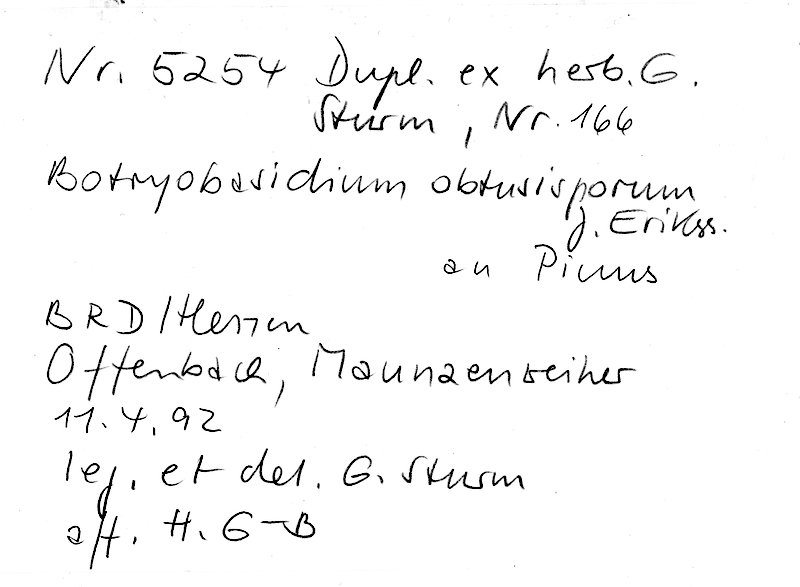 Nr. 5254 Dupl. ex herb. G.
Sturm, Nr. 166
Botryobasidium obtusisporum
J. Erikss.
an Pinus
BRD/Hessen
Offenbach, Maunzenweiher
11.4.92
leg. et det. G. Sturm
aff. H. G-B